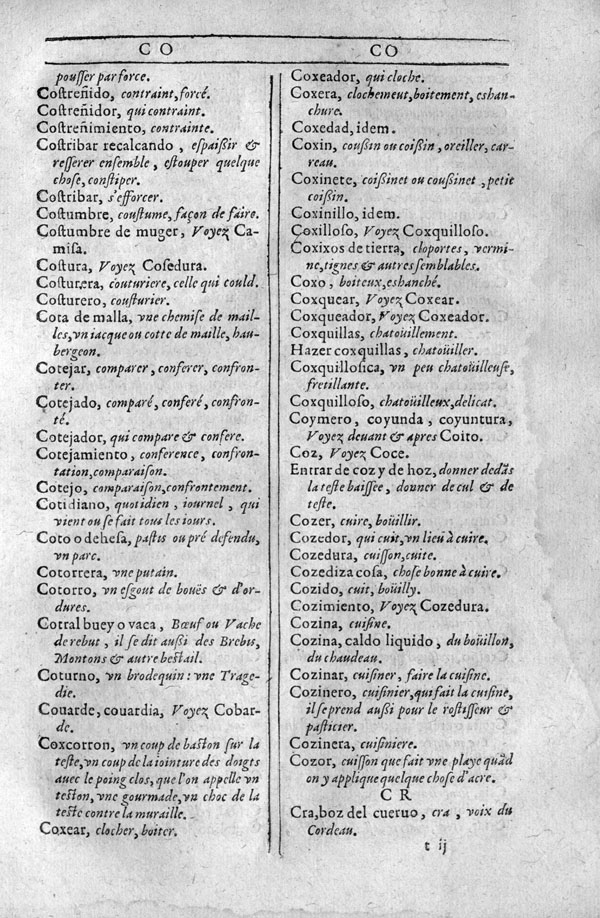 CO
pousser par force.
Costreñido, contraint, forcé.
Costreñidor, qui contraint.
Costreñimiento, contrainte.
Costribar recalcando, espaißir &
resserer ensemble, estouper quelque
chose, constiper.
Costribar, s'efforcer.
Costumbre, coustume, façon de faire.
Costumbre de muger, Voyez Ca-
misa.
Costura, Voyez Cosedura.
Costurera, couturiere, celle qui could.
Costurero, cousturier.
Cota de malla, vne chemise de mail-
les, vn iacque ou cotte de maille, hau-
bergeon.
Cotejar, comparer, conferer, confron-
ter.
Cotejado, comparé, conferé, confron-
té.
Cotejador, qui compare & confere.
Cotejamiento, conference, confron-
tation, comparaison.
Cotejo, comparaison, confrontement.
Cotidiano, quotidien, iournel, qui
vient ou se fait tous les iours.
Coto o dehesa, pastis ou pré defendu,
vn parc.
Cotorrera, vne putain.
Cotorro, vn esgout de bouës & d'or-
dures.
Cotral buey o vaca, Bœuf ou Vache
de rebut, il se dit außi des Brebis,
Montons & autre bestail.
Coturno, vn brodequin: vne Trage-
die.
Couarde, couardia, Voyez Cobar-
de.
Coxcorron, vn coup de baston sur la
teste, vn coup de la iointure des doigts
auec le poing clos, que l'on appelle vn
teston, vne gourmade, vn choc de la
teste contre la muraille.
Coxear, clocher, boiter.
CO
Coxeador, qui cloche.
Coxera, clochemeut, boitement, eshan-
chure.
Coxedad, idem.
Coxin, coußin ou coißin, oreiller, car-
reau.
Coxinete, coißinet ou coußinet, petit
coißin.
Coxinillo, idem.
Coxilloso, Voyez Coxquilloso.
Coxixos de tierra, cloportes, vermi-
ne, tignes & autres semblables.
Coxo, boiteux, eshanché.
Coxquear, Voyez Coxear.
Coxqueador, Voyez Coxeador.
Coxquillas, chatoüillement.
Hazer coxquillas, chatoüiller.
Coxquillosica, vn peu chatoüilleuse,
fretillante.
Coxquilloso, chatoüilleux, delicat.
Coymero, coyunda, coyuntura,
Voyez deuant & apres Coito.
Coz, Voyez Coce.
Entrar de coz y de hoz, donner dedãs
la teste baissee, donner de cul & de
teste.
Cozer, cuire, boüillir.
Cozedor, qui cuit, vn lieu à cuire.
Cozedura, cuisson, cuite.
Cozediza cosa, chose bonne à cuire.
Cozido, cuit, boüilly.
Cozimiento, Voyez Cozedura.
Cozina, cuisine.
Cozina, caldo liquido, du boüillon,
du chaudeau.
Cozinar, cuisiner, faire la cuisine.
Cozinero, cuisinier, qui fait la cuisine,
il se prend außi pour le rostisseur &
pasticier.
Cozinera, cuisiniere.
Cozor, cuisson que fait vne playe quãd
on y applique quelque chose d'acre.
CR
Cra, boz del cueruo, cra, voix du
Cordeau.
t ij